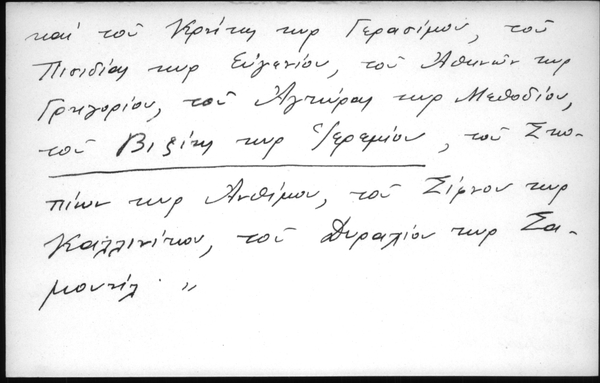 καί τοῦ Κρήτης κυρ Γερασίμου, τοῦ
Πισιδίας κυρ Εὐγενίου, τοῦ Ἀθηνῶν κυρ
Γρηγορίου, τοῦ Ἀγκύρας κυρ Μεθοδίου,
τοῦ Βιζύης κυρ Ἱερεμίου, τοῦ Σκο-
πίων κυρ Ἀνθίμου, τοῦ Σίφνου κυρ
Καλλινίκου, τοῦ Δυραχίου κυρ Σα-
μουήλ. "